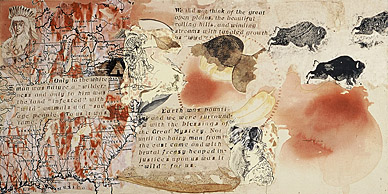 We did not think of the great
open plains, the beautiful
rolling hills, and winding
streams with tangled growth
as "wild"
Only to the white
man was nature a "wilder-
ness" and only to him was
the land "infested" with
"wild" animals and "sav-
age" people. To us it was
Earth was bounti-
ful and we were surround
ed with the blessings of
the Great Mystery. Not
until the hairy man from
the east came and with
brutal frenzy heaped in-
justices upon us was it
"wild" for us.